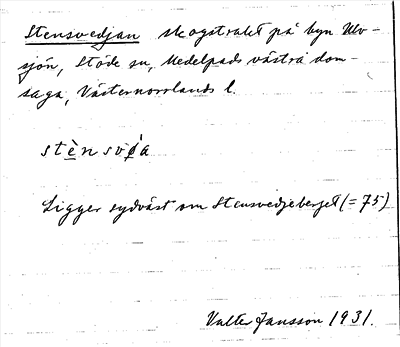 Stensvedjan skogstrakt på byn Ulv-
sjön, Stöde sn, Medelpads västra dom-
saga, Västernorrlands l.
stènsvø̀a
Ligger sydväst om Stensvedjeberget (= 75)
Valter Jansson 1931.